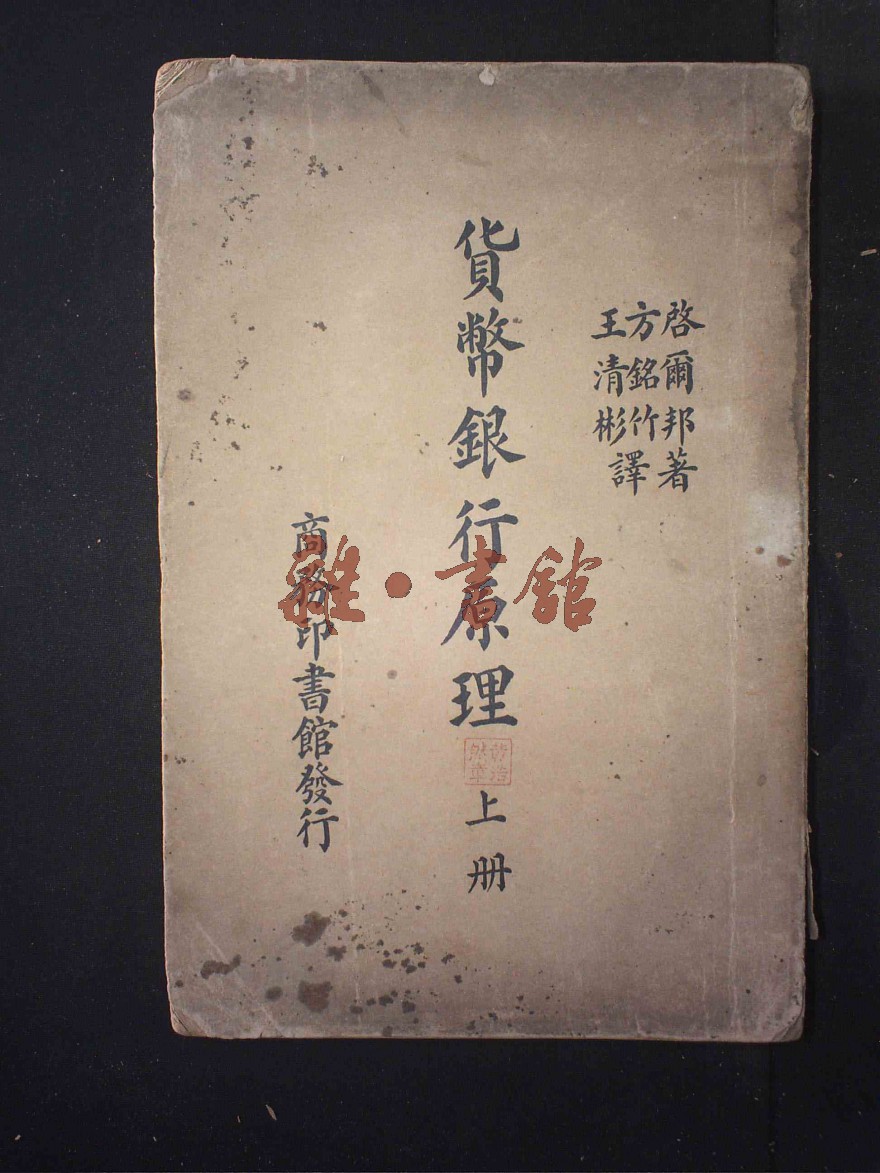 啓爾邦著
方銘竹
王清彬
譯
貨幣銀行原理
上册
商務印書館發行
雜·書館